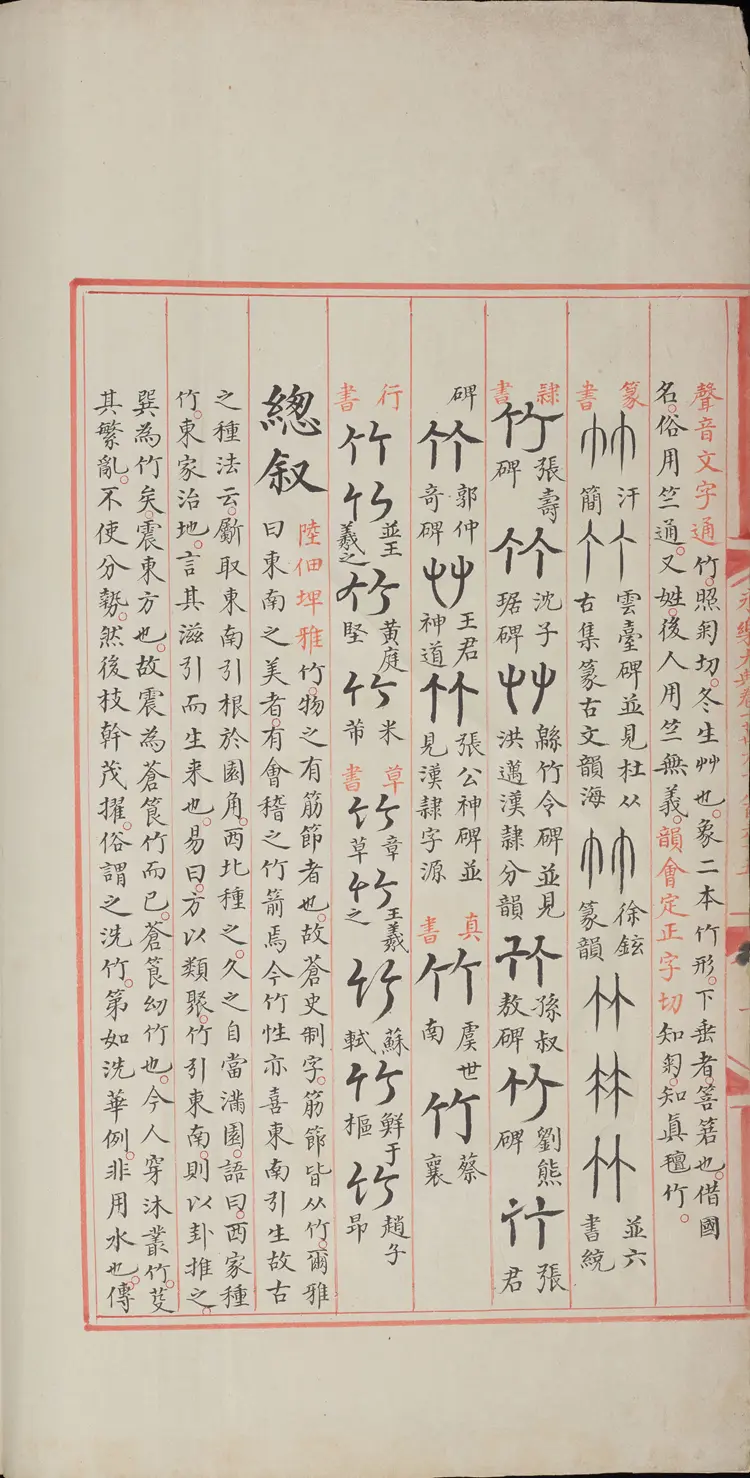 聲音文字通竹。照匊切。冬生艸也。象二本竹形。下垂者。筶箬也。借國
名。俗用竺通。又姓。後人用竺無義。韻會定正字切知匊。知眞襢竹。
篆書竹汗簡竹雲臺碑並見杜从古集篆古文韻海竹徐鉉篆韻竹竹竹並六書統
隸書竹張壽碑竹沈子琚碑竹緜竹令碑並見洪邁漢隸分韻竹孫叔敖碑竹劉熊碑竹張君
碑竹郭仲奇碑竹王君神道竹張公神碑並見漢隸字源真書竹虞世南竹蔡襄
行書竹竹並王羲之竹黃庭堅竹米芾草書竹章草竹王羲之竹蘇軾竹鮮于樞竹趙子昂
總叙
陸佃埤雅竹。物之有筋節者也。故蒼史制字。筋節皆从竹。爾雅
曰東南之美者。有會稽之竹箭焉今竹性亦喜東南引生故古
之種法云。斸取東南引根於園角。西北種之。久之自當滿園。語曰。西家種
竹。東家治地。言其滋引而生来也。易曰。方以類聚。竹引東南。則以卦推之。
巽為竹矣。震東方也。故震為蒼筤竹而已。蒼筤幼竹也。今人穿沐叢竹。芟
其繁亂。不使分勢。然後枝幹茂擢。俗謂之洗竹。第如洗華例。非用水也。傳